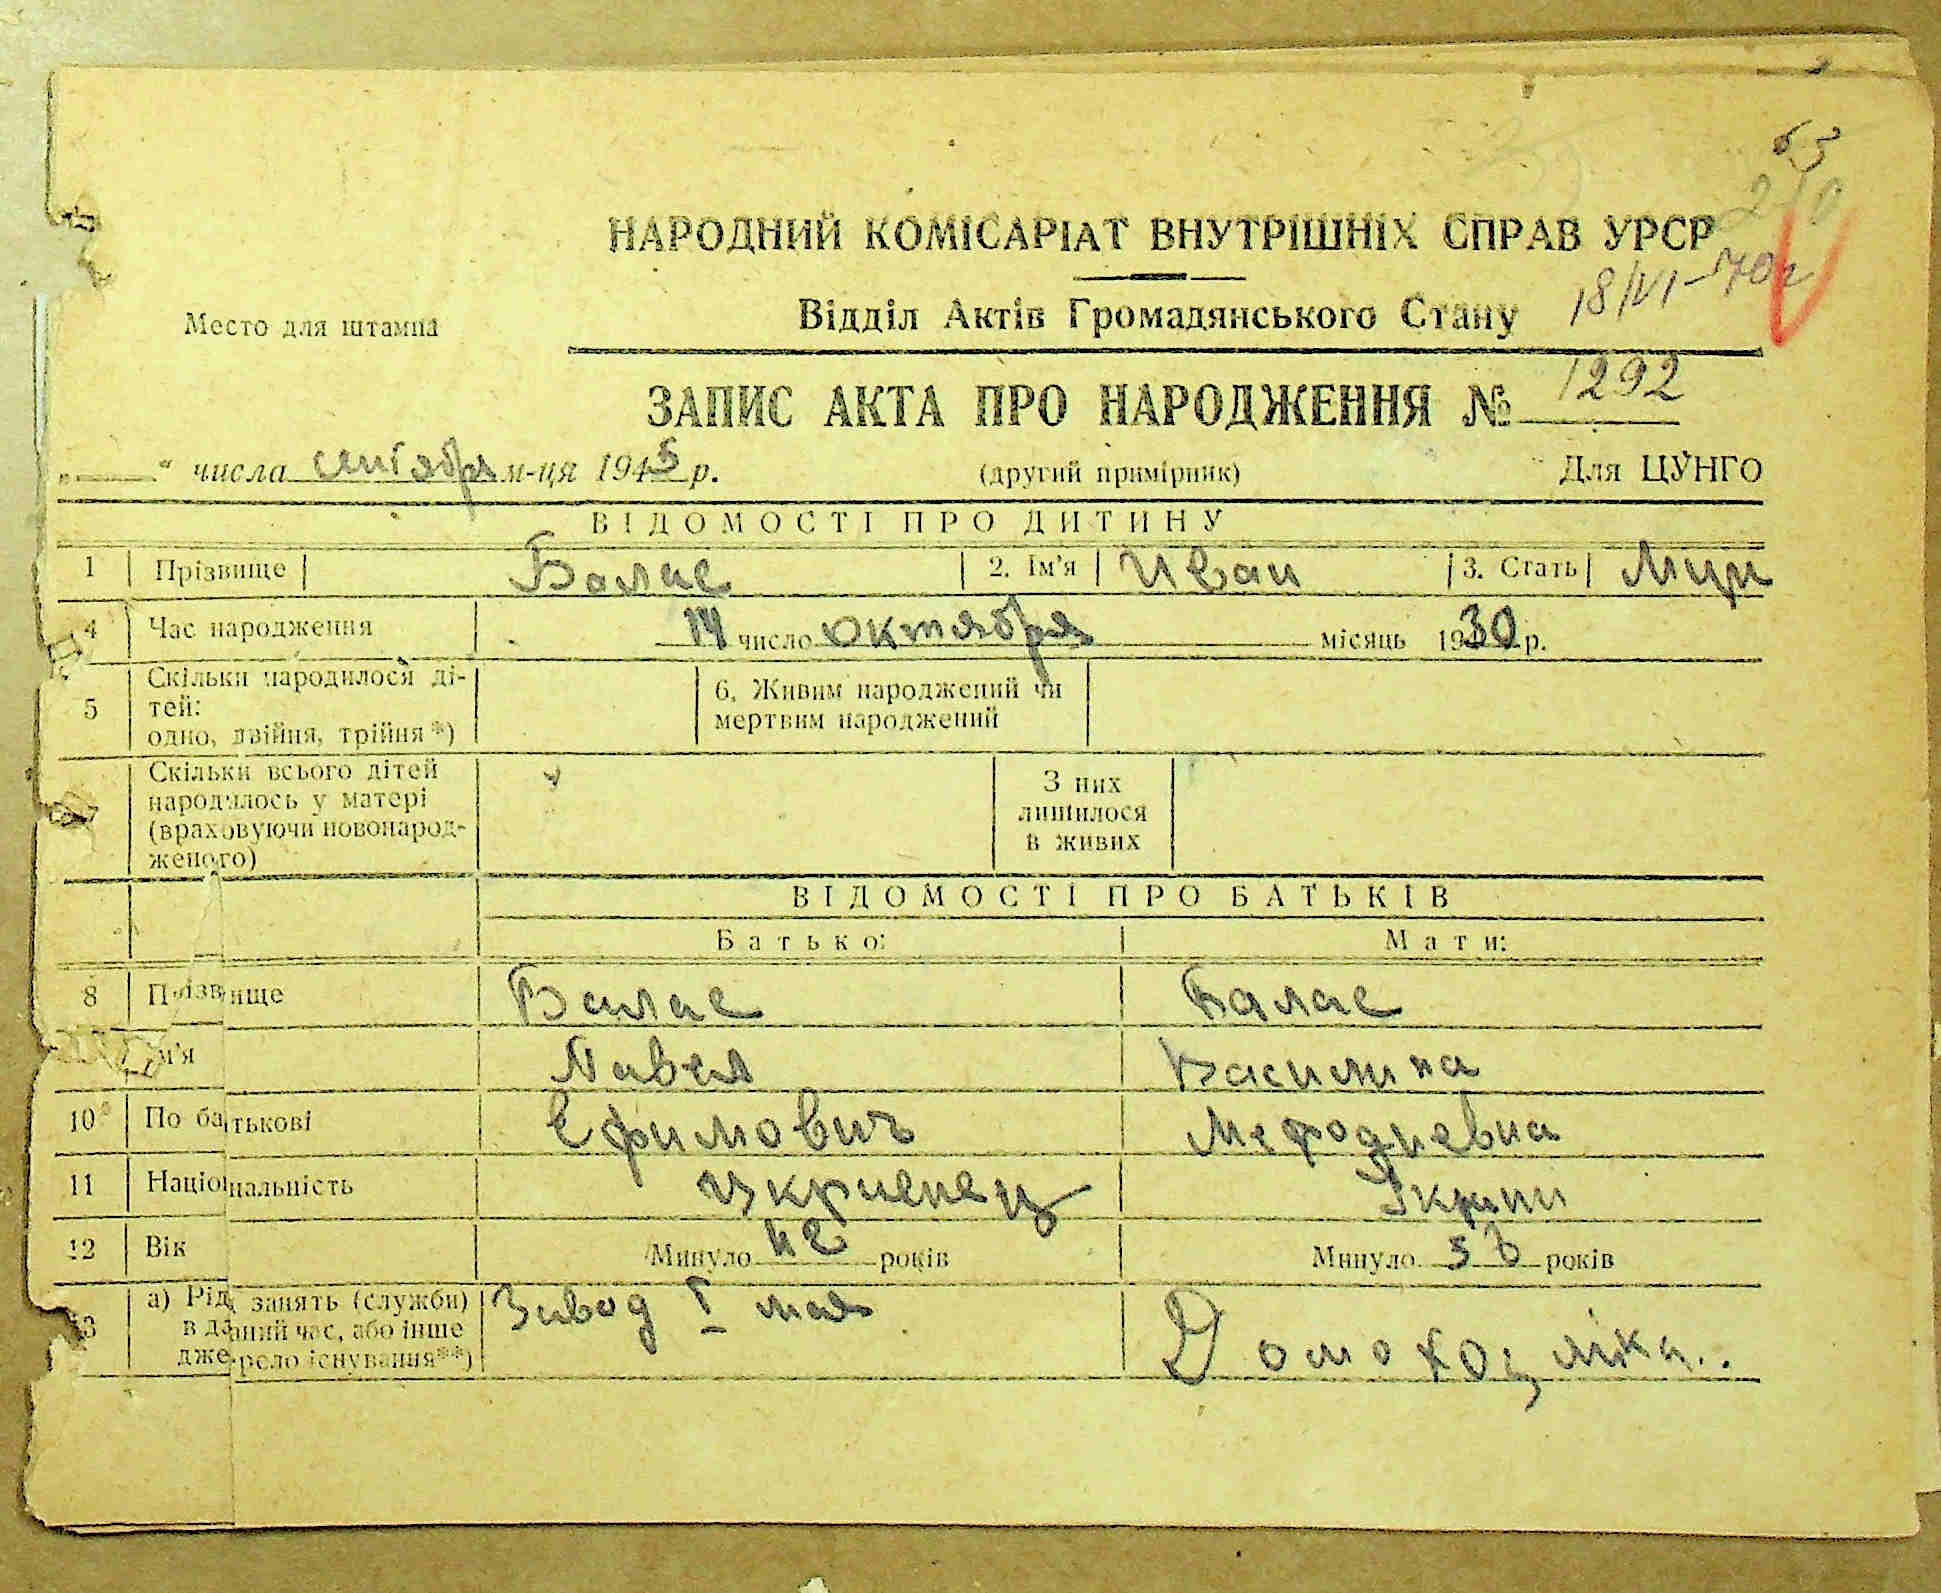 63
210
НАРОДНИЙ КОМІСАРІАТ ВНУТРІШНІХ СПРАВ УРСР
18/VI-70г
Место для штампа
Відділ Актів Громадянського Стану
ЗАПИС АКТА ПРО НАРОДЖЕННЯ № 1292
„ “ числа сентября м-ця 1945 р. (другий примірник) Для ЦУНГО
ВІДОМОСТІ ПРО ДИТИНУ
1 Прізвище Балас 2. Ім'я Иван 3. Стать Муж
4 Час народження 14 число октября місяць 1930 р.
5 Скільки народилося ді-
тей:
одно, двійня, трійня*)
6. Живим народжений чи
мертвим народжений
Скільки всього дітей
народилось у матері
(враховуючи новонарод-
женого)
З них
лишилося
в живих
ВІДОМОСТІ ПРО БАТЬКІВ
Батько: Мати:
8 Прізвище Балас Балас
Ім'я Павел Василина
10 По батькові Ефимович Мефодиевна
11 Національність Украенец Украин
12 Вік Минуло 42 років Минуло 36 років
13 а) Рід занять (служби)
в даний час, або інше
джерело існування**)
Завод I мая Домохозяйка..